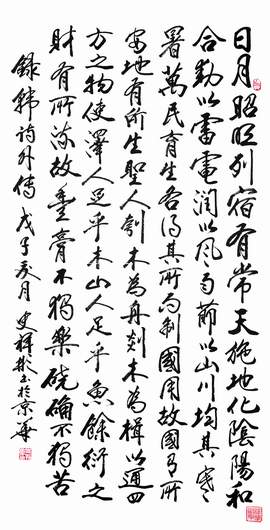 日月昭明列宿有常天施地化陰陽和
合動以雷電潤以風雨節以山川均其寒
暑萬民育生各得其所而制國用故國有所
安地有所生聖人刳木為舟剡木為楫以通四
方之物使澤人足乎木山人足乎魚餘衍之
財有所流故豐膏不獨樂磽确不獨苦
錄韓詩外傳戊子月史彬書於京華